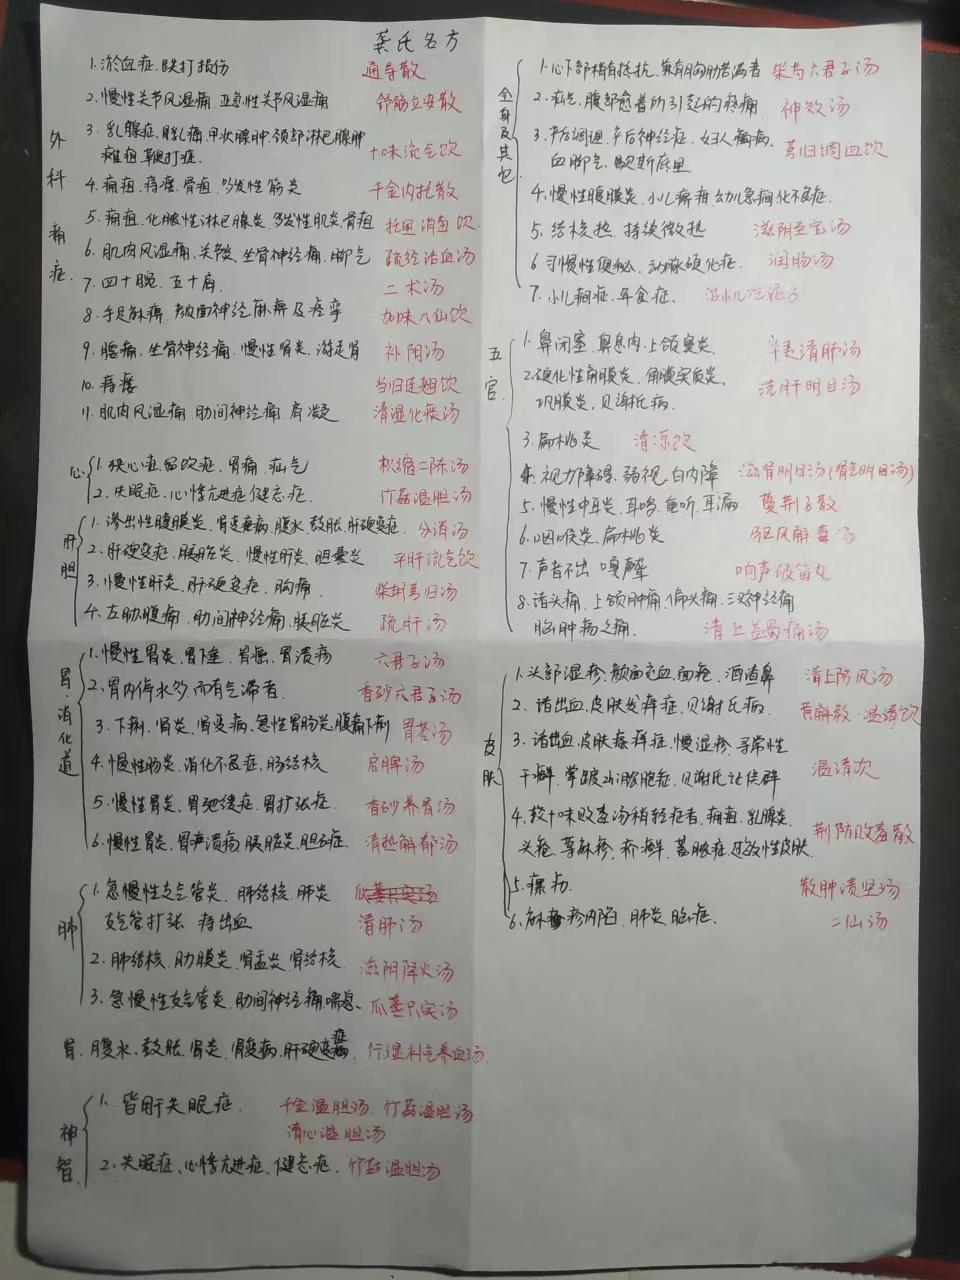 龚氏名方
外科病症
1. 淤血症、跌打损伤 通导散
2. 慢性关节风湿痛、亚急性关节风湿痛 舒筋立安散
3. 乳腺症、脱乳痛、甲状腺肿、颈部淋巴腺肿
瘫疽、鞭打症. 十味流气饮
4. 痈疽、痔瘘、骨疽、多发性筋炎 千金内托散
5. 痈疽、化脓性淋巴腺炎、多发性肌炎、骨疽 托里消毒饮
6. 肌肉风湿痛、关节炎、坐骨神经痛、脚气 疏经活血汤
7. 四十腕、五十肩. 二术汤
8. 手足麻痹、颜面神经麻痹及痉挛 加味八仙饮
9. 腰痛、坐骨神经痛、慢性肾炎、游走肾 补阴汤
10. 痔瘘 当归连翘饮
11. 肌肉风湿痛、肋间神经痛、肩凝 清湿化痰汤
心
1. 狭心症、留饮症、胃痛、疝气 枳缩二陈汤
2. 失眠症、心悸亢进症、健忘症. 竹茹温胆汤
肝胆
1. 渗出性腹膜炎、肾变病、腹水、鼓胀、肝硬变症. 分消汤
2. 肝硬变症、胰脏炎、慢性肝炎、胆囊炎 平肝流气饮
3. 慢性肝炎、肝硬变症、胸痛. 柴胡芎归汤
4. 左肋腹痛、肋间神经痛、胰脏炎 疏肝汤
胃、消化道
1. 慢性胃炎、胃下垂、胃癌、胃溃疡 六君子汤
2. 胃内停水多、而有气滞者. 香砂六君子汤
3. 下痢、肾炎、肾变病、急性胃肠炎、腹痛下痢 胃苓汤
4. 慢性肠炎、消化不良症、肠结核 启脾汤
5. 慢性胃炎、胃弛缓症、胃扩张症. 香砂养胃汤
6. 慢性胃炎、胃溃疡、胰脏炎、胆石症. 清热解郁汤
肺
1. 急慢性支气管炎、肺结核、肺炎
支气管扩张 痔出血 清肺汤
2. 肺结核、肋膜炎、肾盂炎、肾结核. 滋阴降火汤
3. 急慢性支气管炎、肋间神经痛、喘息、 瓜蒌只实汤
胃. 腹水、鼓胀、肾炎、肾变病、肝硬变症 行湿利气养血汤.
神智
1. 皆用失眠症. 千金温胆汤. 竹茹温胆汤
清心温胆汤
2. 失眠症、心悸亢进症、健忘症. 竹茹温胆汤
全身及其它
1. 心下部稍有抵抗、兼有胸肋苦满者 柴芍六君子汤
2. 疝气、腹部愈着所引起的疼痛. 神效汤
3. 产后调理、产后神经症、妇人癫病、
血脚气、歇斯底里 芎归调血饮
4. 慢性腹膜炎、小儿癖疳、幼儿急痫化不良症.
5. 结核热、持续微热 滋阴至宝汤
6. 习惯性便秘、动脉硬化症. 润肠汤
7. 小儿痫症、异食症.
五官
1. 鼻闭塞、鼻息肉、上颌窦炎 辛夷清肺汤
2. 硬化性角膜炎、角膜实质炎.
巩膜炎、贝谢氏病. 洗肝明目汤
3. 扁桃炎 清凉饮
4. 视力障碍、弱视、白内障 滋肾明目汤(肾气明目汤)
5. 慢性中耳炎、耳鸣、重听、耳漏 蔓荆子散
6. 咽喉炎、扁桃炎 驱风解毒汤
7. 声音不出 嘎声 响声破笛丸
8. 诸头痛、上颌肿痛、偏头痛、三叉神经痛
脑肿疡之痛. 清上蠲痛汤
皮肤
1. 头部湿疹、颜面充血、面疮、酒渣鼻 清上防风汤
2. 诸出血、皮肤发痒症、贝谢氏病. 黄解散·温清饮
3. 诸出血、皮肤瘙痒症、慢湿疹、寻常性
干癣、掌蹠水泡脓胞症、贝谢氏让侯群 温清饮
4. 较十味败毒汤稍轻症者、痈疽、乳腺炎、
头疮、荨麻疹、疥癣、蓄脓症、过敏性皮肤. 荆防败毒散
5. 瘰疬 散肿溃坚汤
6. 麻疹内陷、肺炎、脑症. 二仙汤